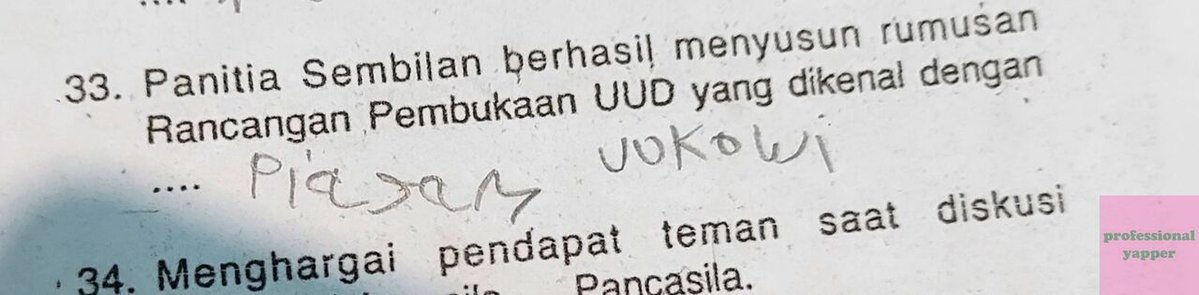 33. Panitia Sembilan berhasil menyusun rumusan
Rancangan Pembukaan UUD yang dikenal dengan
.... Piagam Jokowi
34. Menghargai pendapat teman saat diskusi
Pancasila.
professional
yapper